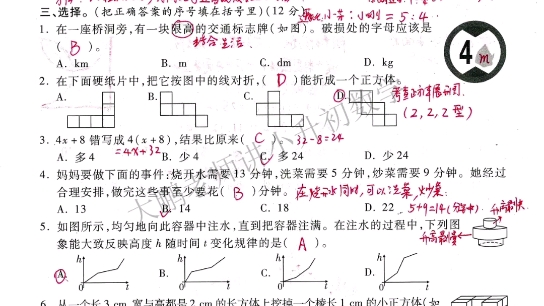 小辛:小刚=5:4
三、选择。(把正确答案的序号填在括号里)(12分)
1. 在一座桥洞旁,有一块限高的交通标志牌(如图)。破损处的字母应该是
( B )。 结合生活 4 m
A. km B. m C. dm D. kg
2. 在下面硬纸片中,把它按图中的线对折,( D )能折成一个正方体。
A. B. C. D. 考查正方体展开图.
(2,2,2型)
3. 4x+8错写成4(x+8),结果比原来( C 32-8=24
=4x+32
A. 多4 B. 少4 C. 多24 D. 少24
4. 妈妈要做下面的事件:烧开水需要13分钟,洗菜需要5分钟,炒菜需要9分钟。她经过
合理安排,做完这些事至少要花( B )分钟。在烧开水同时,可以洗菜,炒菜.
A. 13 B. 14 C. 18 D. 22 5+9=14(分钟)
5. 如图所示,均匀地向此容器中注水,直到把容器注满。在注水的过程中,下列图
象能大致反映高度h随时间t变化规律的是( A )。
A. h 0 t B. h 0 t C. h 0 t D. h 0 t
升高最快
升高最慢
6. 从一个长3 cm,宽与高都是2 cm的长方体上挖掉一个棱长1 cm的小正方体(如
大鹏老师讲小升初数学